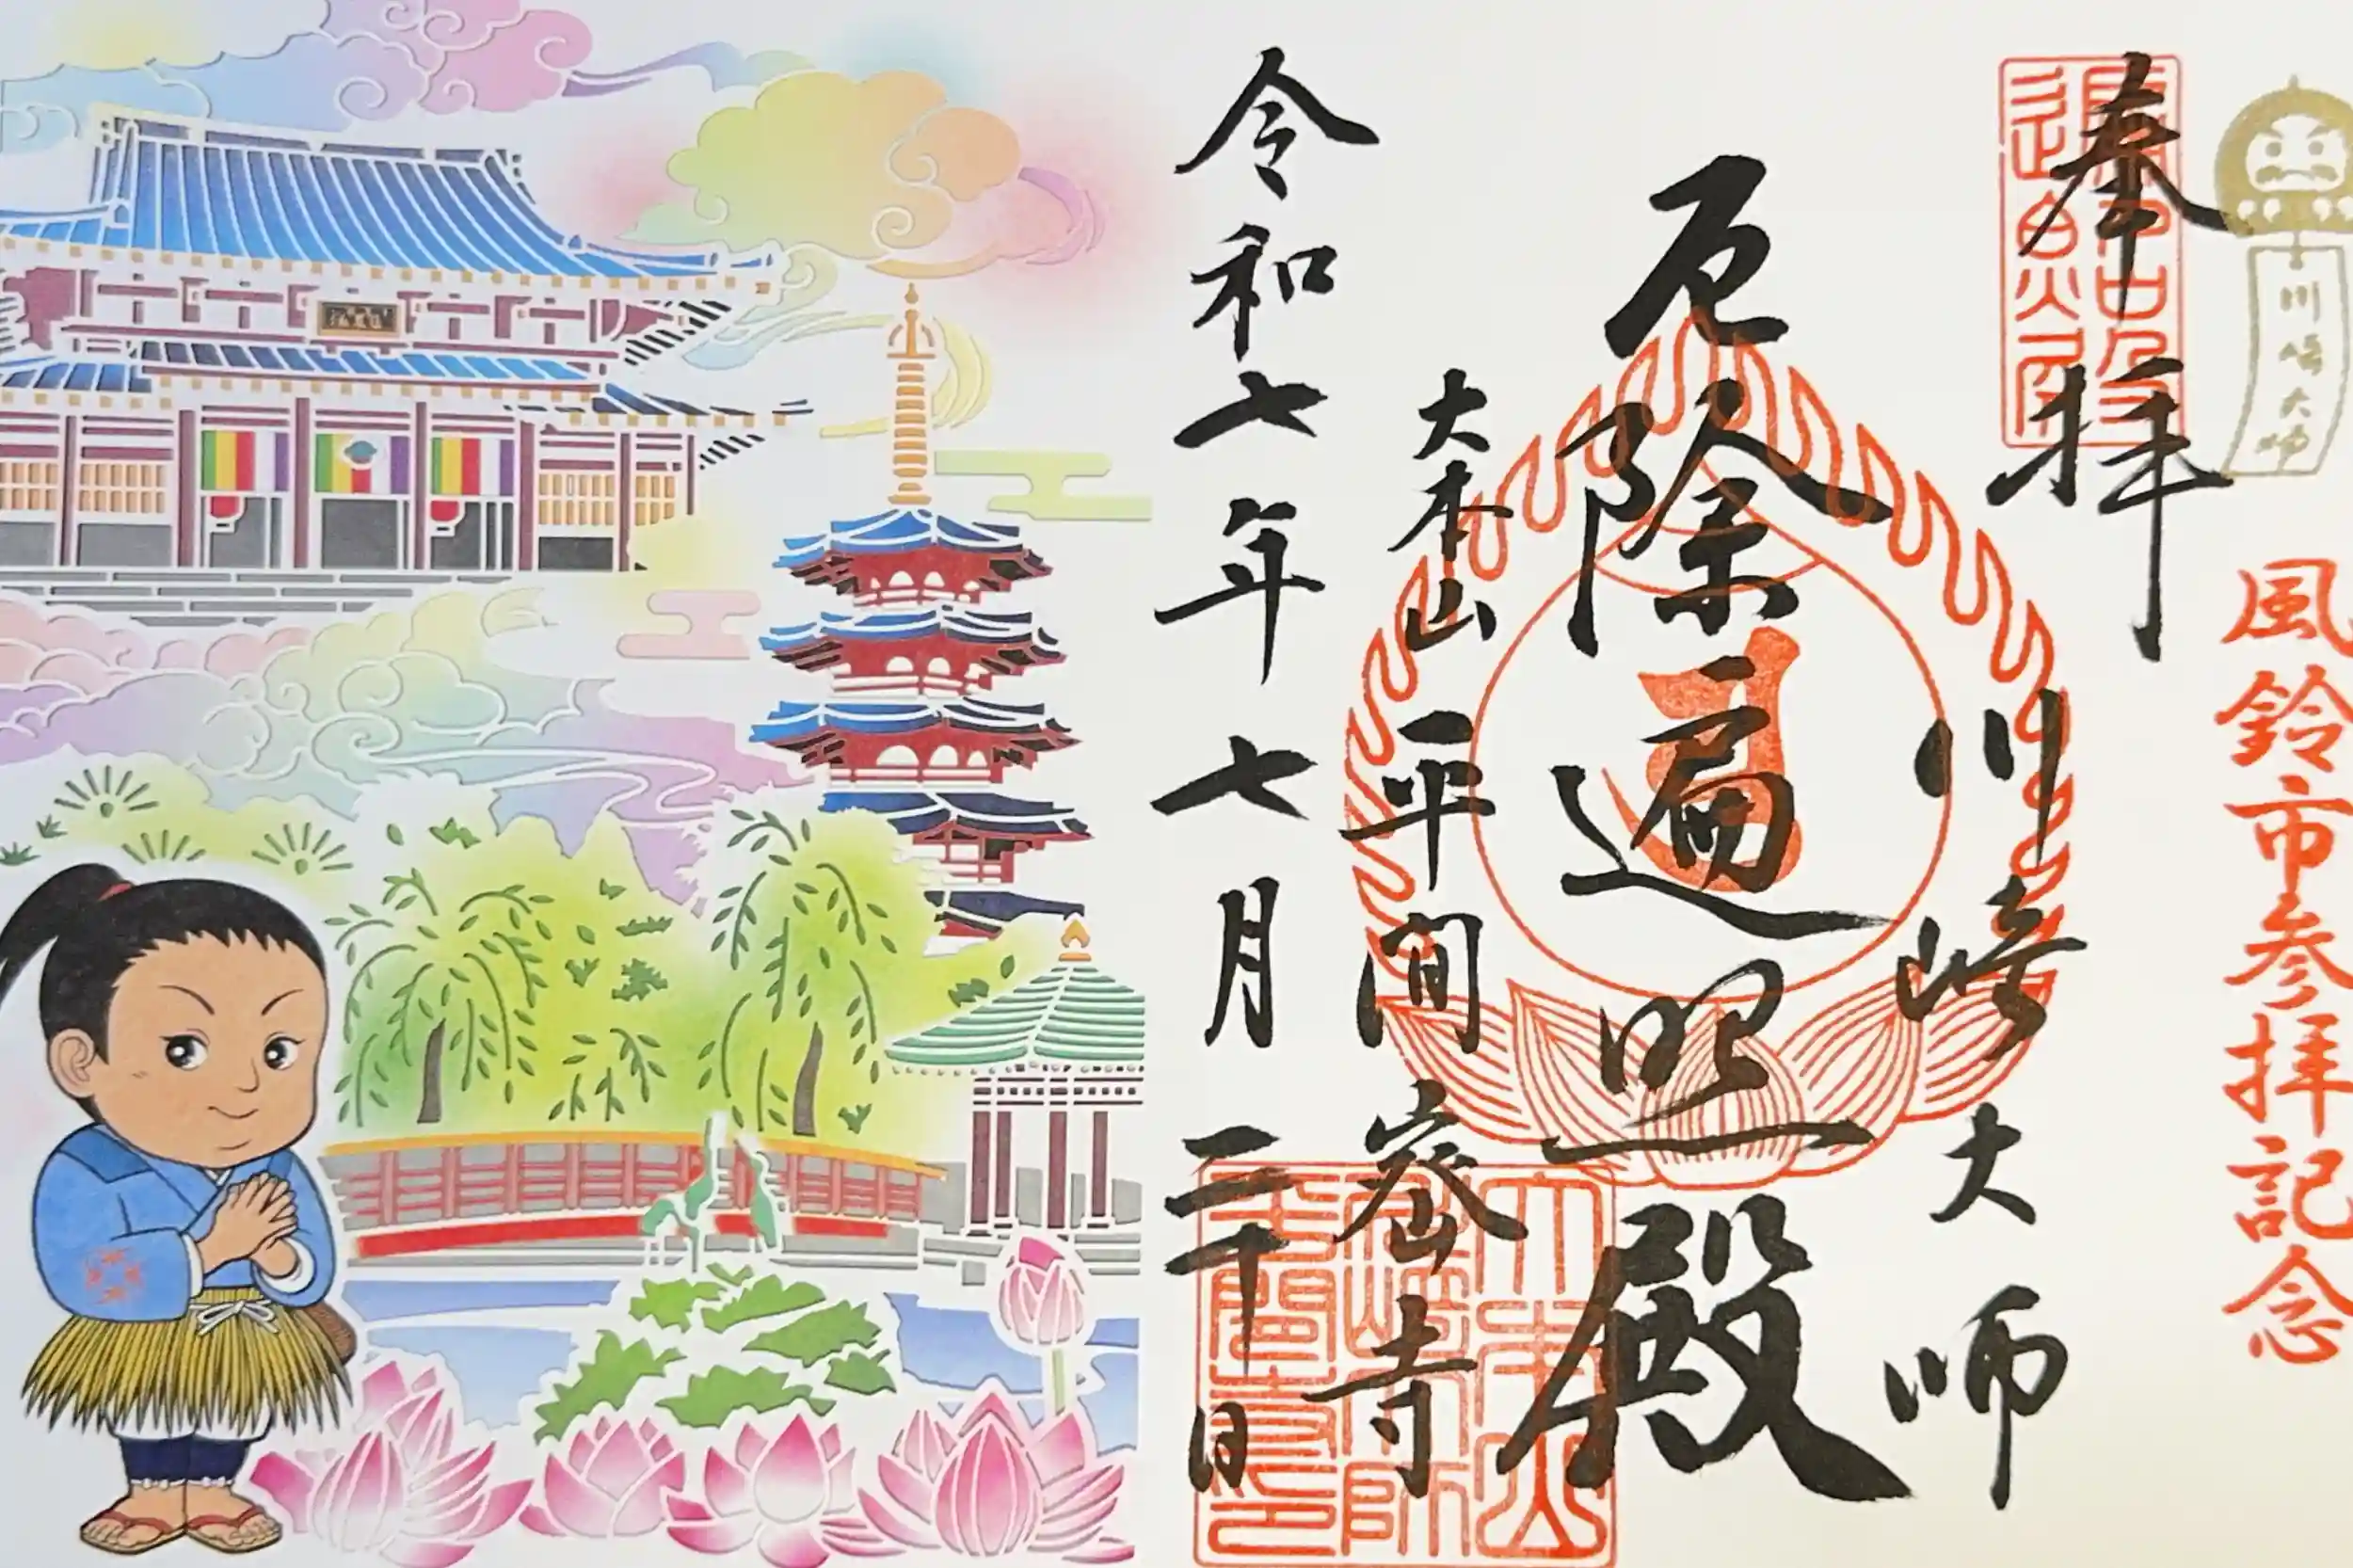 川崎大師
風鈴市参拝記念
奉拝
川崎大師
厄除遍照殿
大本山 平間寺
令和七年七月二十日